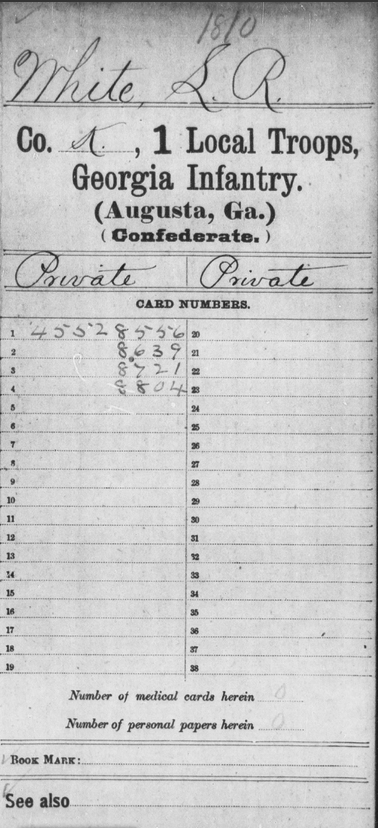 1810
White, L. R.
Co. K, 1 Local Troops,
Georgia Infantry.
(Augusta, Ga.)
(Confederate.)
Private | Private
CARD NUMBERS.
1 45528556 20
2 8639 21
3 8721 22
4 8804 23
5 24
6 25
7 26
8 27
9 28
10 29
11 30
12 31
13 32
14 33
15 34
16 35
17 36
18 37
19 38
Number of medical cards herein 0
Number of personal papers herein 0
BOOK MARK:
See also